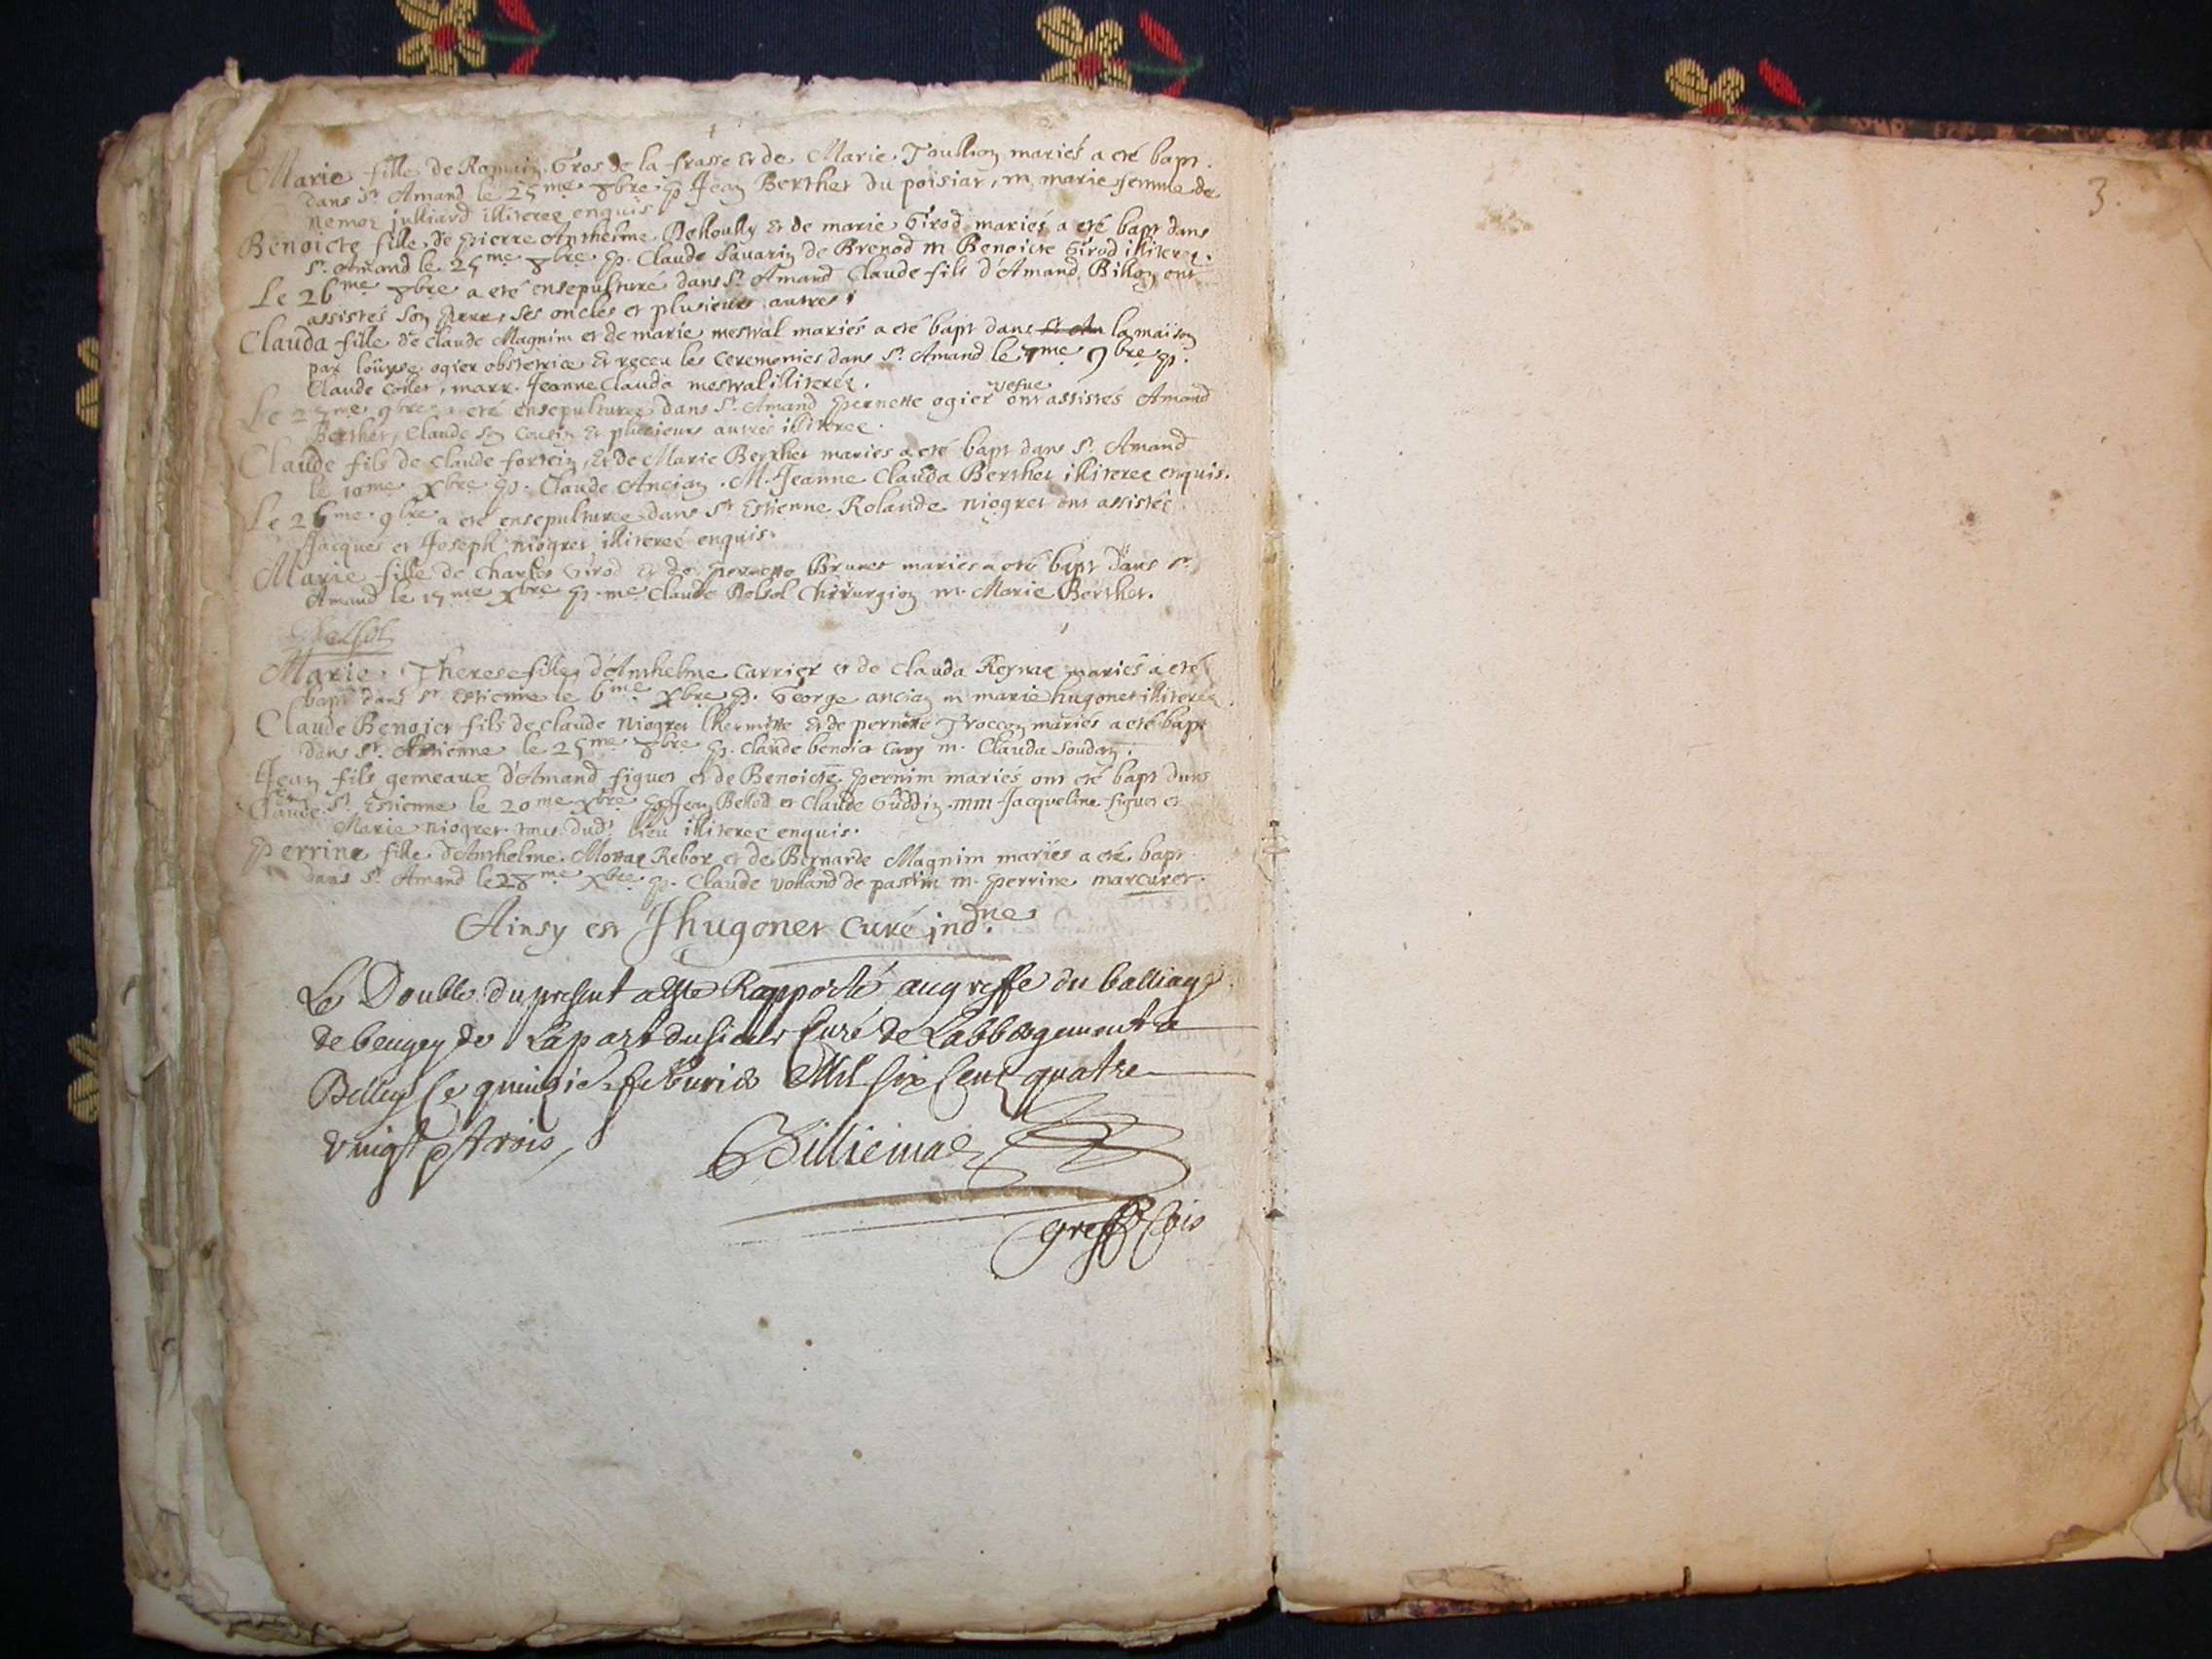 Marie fille de Romain Gros de la frasse et de Marie Toullion mariés a eté bapt.
dans St Amand le 25me 8bre p. Jean Berthet du poisiat, m marie femme de
nemoz julliard illiterez enquis
Benoicte fille de pierre Anthelme Dolloully et de marie Girod mariés a eté bapt dans
St Amand le 25me 8bre p. Claude Savarin de Brenod m Benoicte Girod illiterez.
Le 26me 8bre a eté ensepulturé dans St Amand Claude fils d'Amand Billion ont
assistés son ses oncles et plusieurs autres
Clauda fille de Claude Magnim et de marie mestral mariés a eté bapt dans la maison
par ogier obstetrice et receu les ceremonies dans St Amand le 7me 9bre p.
Claude collet, marr. Jeanne Clauda mestral illiterés.
Le 25me 9bre a eté ensepulturee dans St Amand pernette ogier vefue ont assistés Amand
Berthet, Claude son cousin et plusieurs autres illiterez.
Claude fils de Claude fortein, et de Marie Berthet mariés a eté bapt dans St Amand
le 10me Xbre p. Claude Ancian. M. Jeanne Clauda Berthet illiterez enquis.
Le 26me 9bre a eté ensepulturee dans St Estienne Rolande niogret ont assistés
Jacques et Joseph niogret illiterés enquis.
Marie fille de Charles Girod et de pernette Brunet mariés a eté bapt dans St
Amand le 15me Xbre p. me Claude Delsol Chirurgien m. Marie Berthet.
Delsol
Marie Therese fille d'Anthelme Carrier et de Clauda Reynac mariés a eté
bapt dans St Estienne le 6me Xbre p. George ancian m marie hugonet illiterez
Claude Benoict fils de Claude niogret lhermitte et de pernette Troccon mariés a eté bapt
dans St Estienne le 25me 8bre p. Claude benoit m. Clauda Soudan.
Jean fils gemeaux d'Amand figuet et de Benoicte pernim mariés ont eté bapt dans
et Claude St Estienne le 20me Xbre pp Jean Bellod et Claude Guddin mm Jacqueline figuet et
Marie niogret tous dudt lieu illiterez enquis.
Perrine fille d'Anthelme Rebor et de Bernarde Magnim mariés a eté bapt
dans St Amand le 28me Xbre p. Claude volland de m. perrine marcuret.
Ainsy est J hugonet curé indne
Le Double du present a esté Rapporté au greffe du balliage
de beugey de La part du sieur Curé de Labbergement a
Belley le quinzie feburier Mil six cent quatre
vingt et trois
Billiemaz
greff
3.